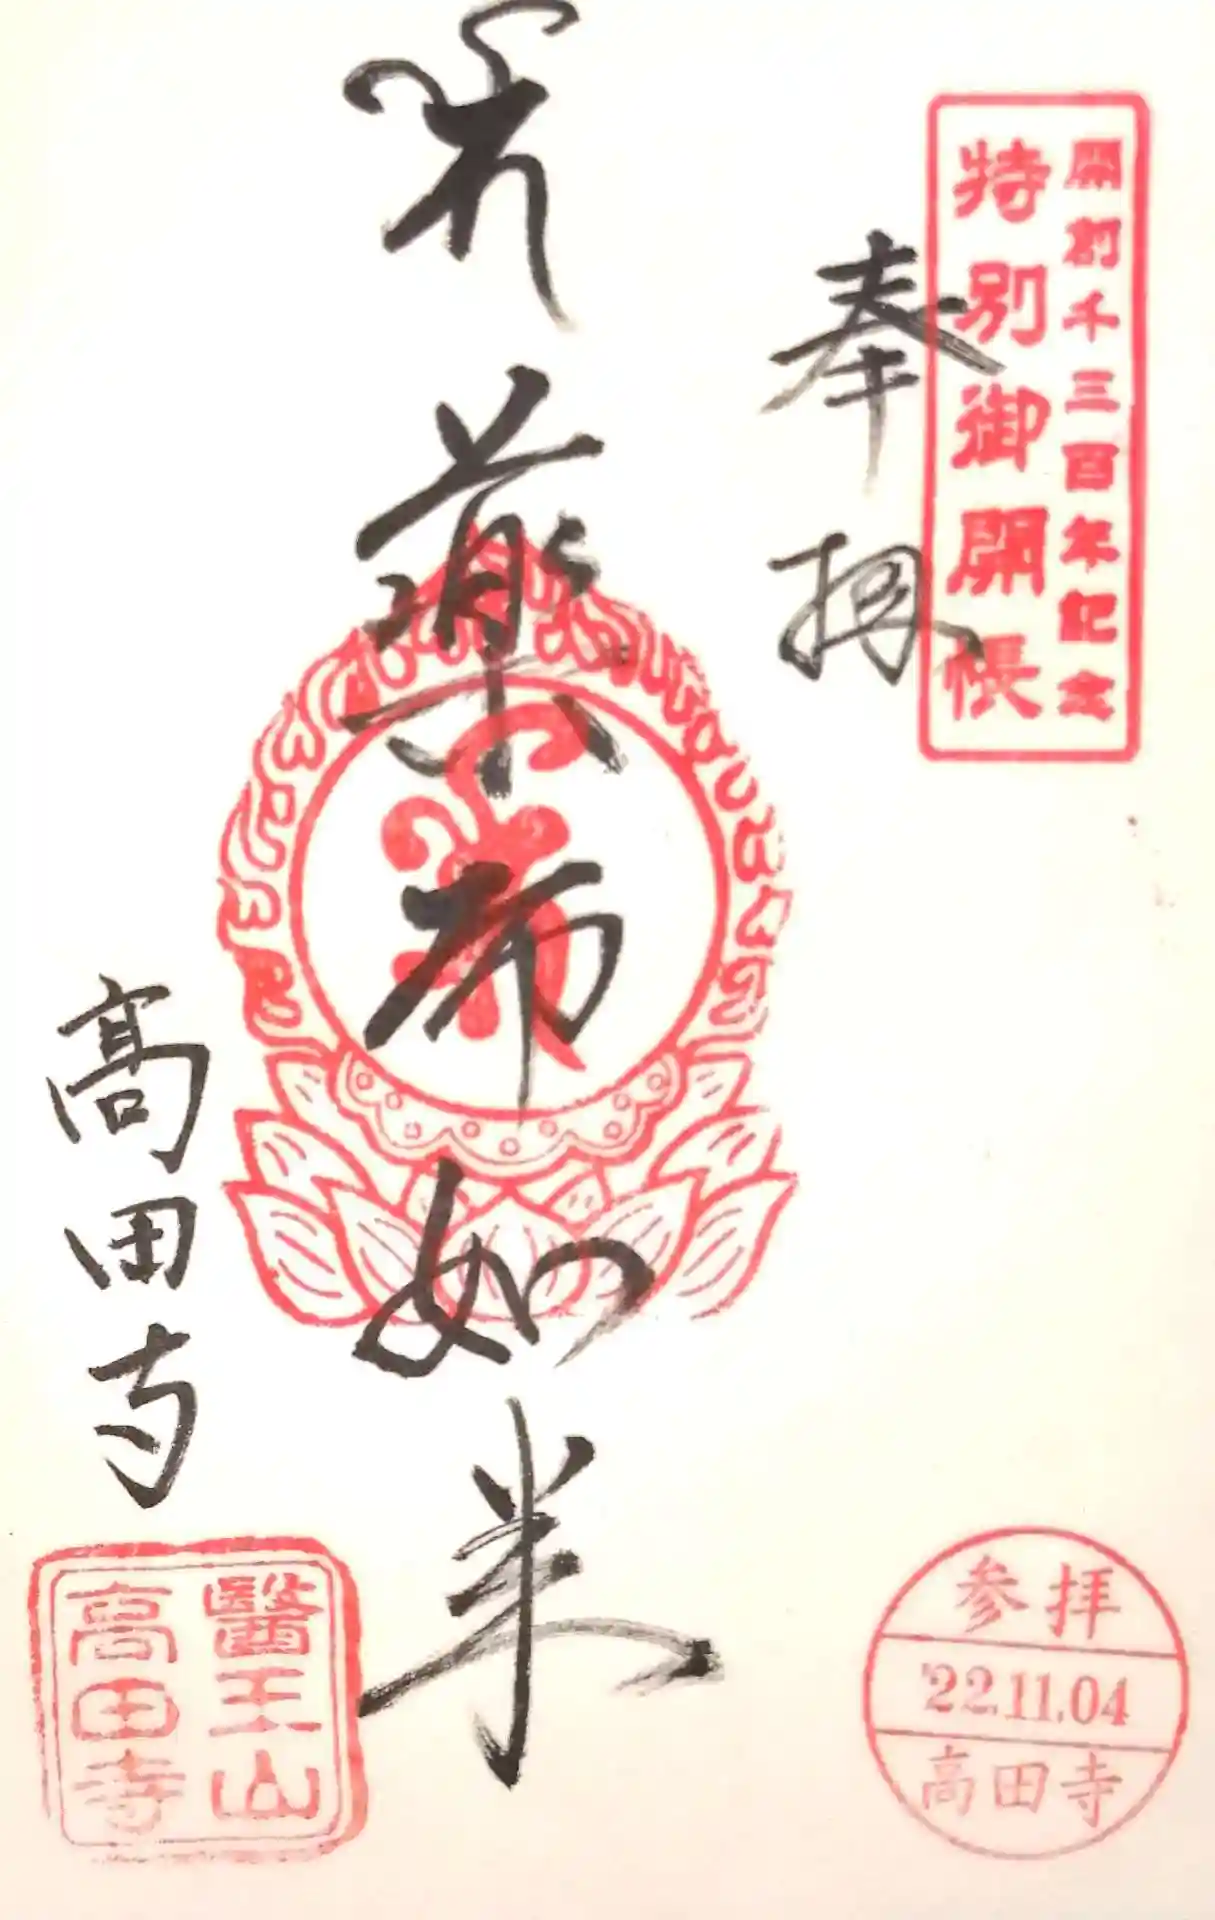 開創千三百年記念
特別御開帳
奉拝
薬师如来
高田寺
醫王山
高田寺
参拝
'22.11.04
高田寺